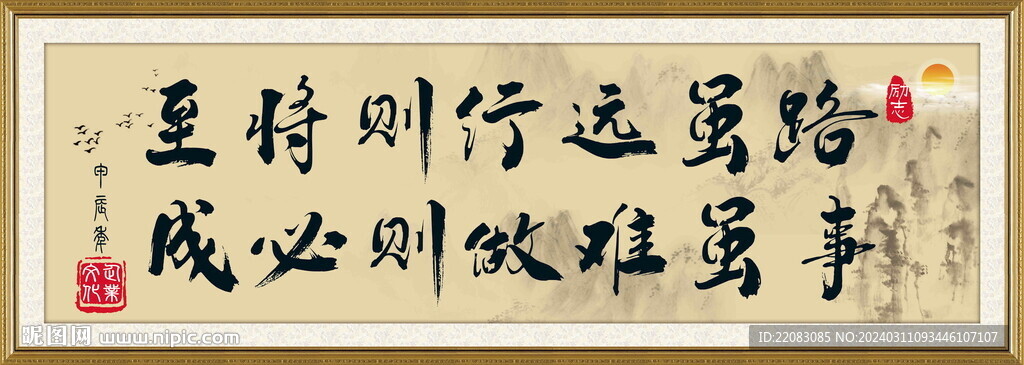 路虽远行则将至
事虽难做则必成
励志
甲辰年
企业文化
昵图网 www.nipic.com
ID:22083085 NO:20240311093446107107